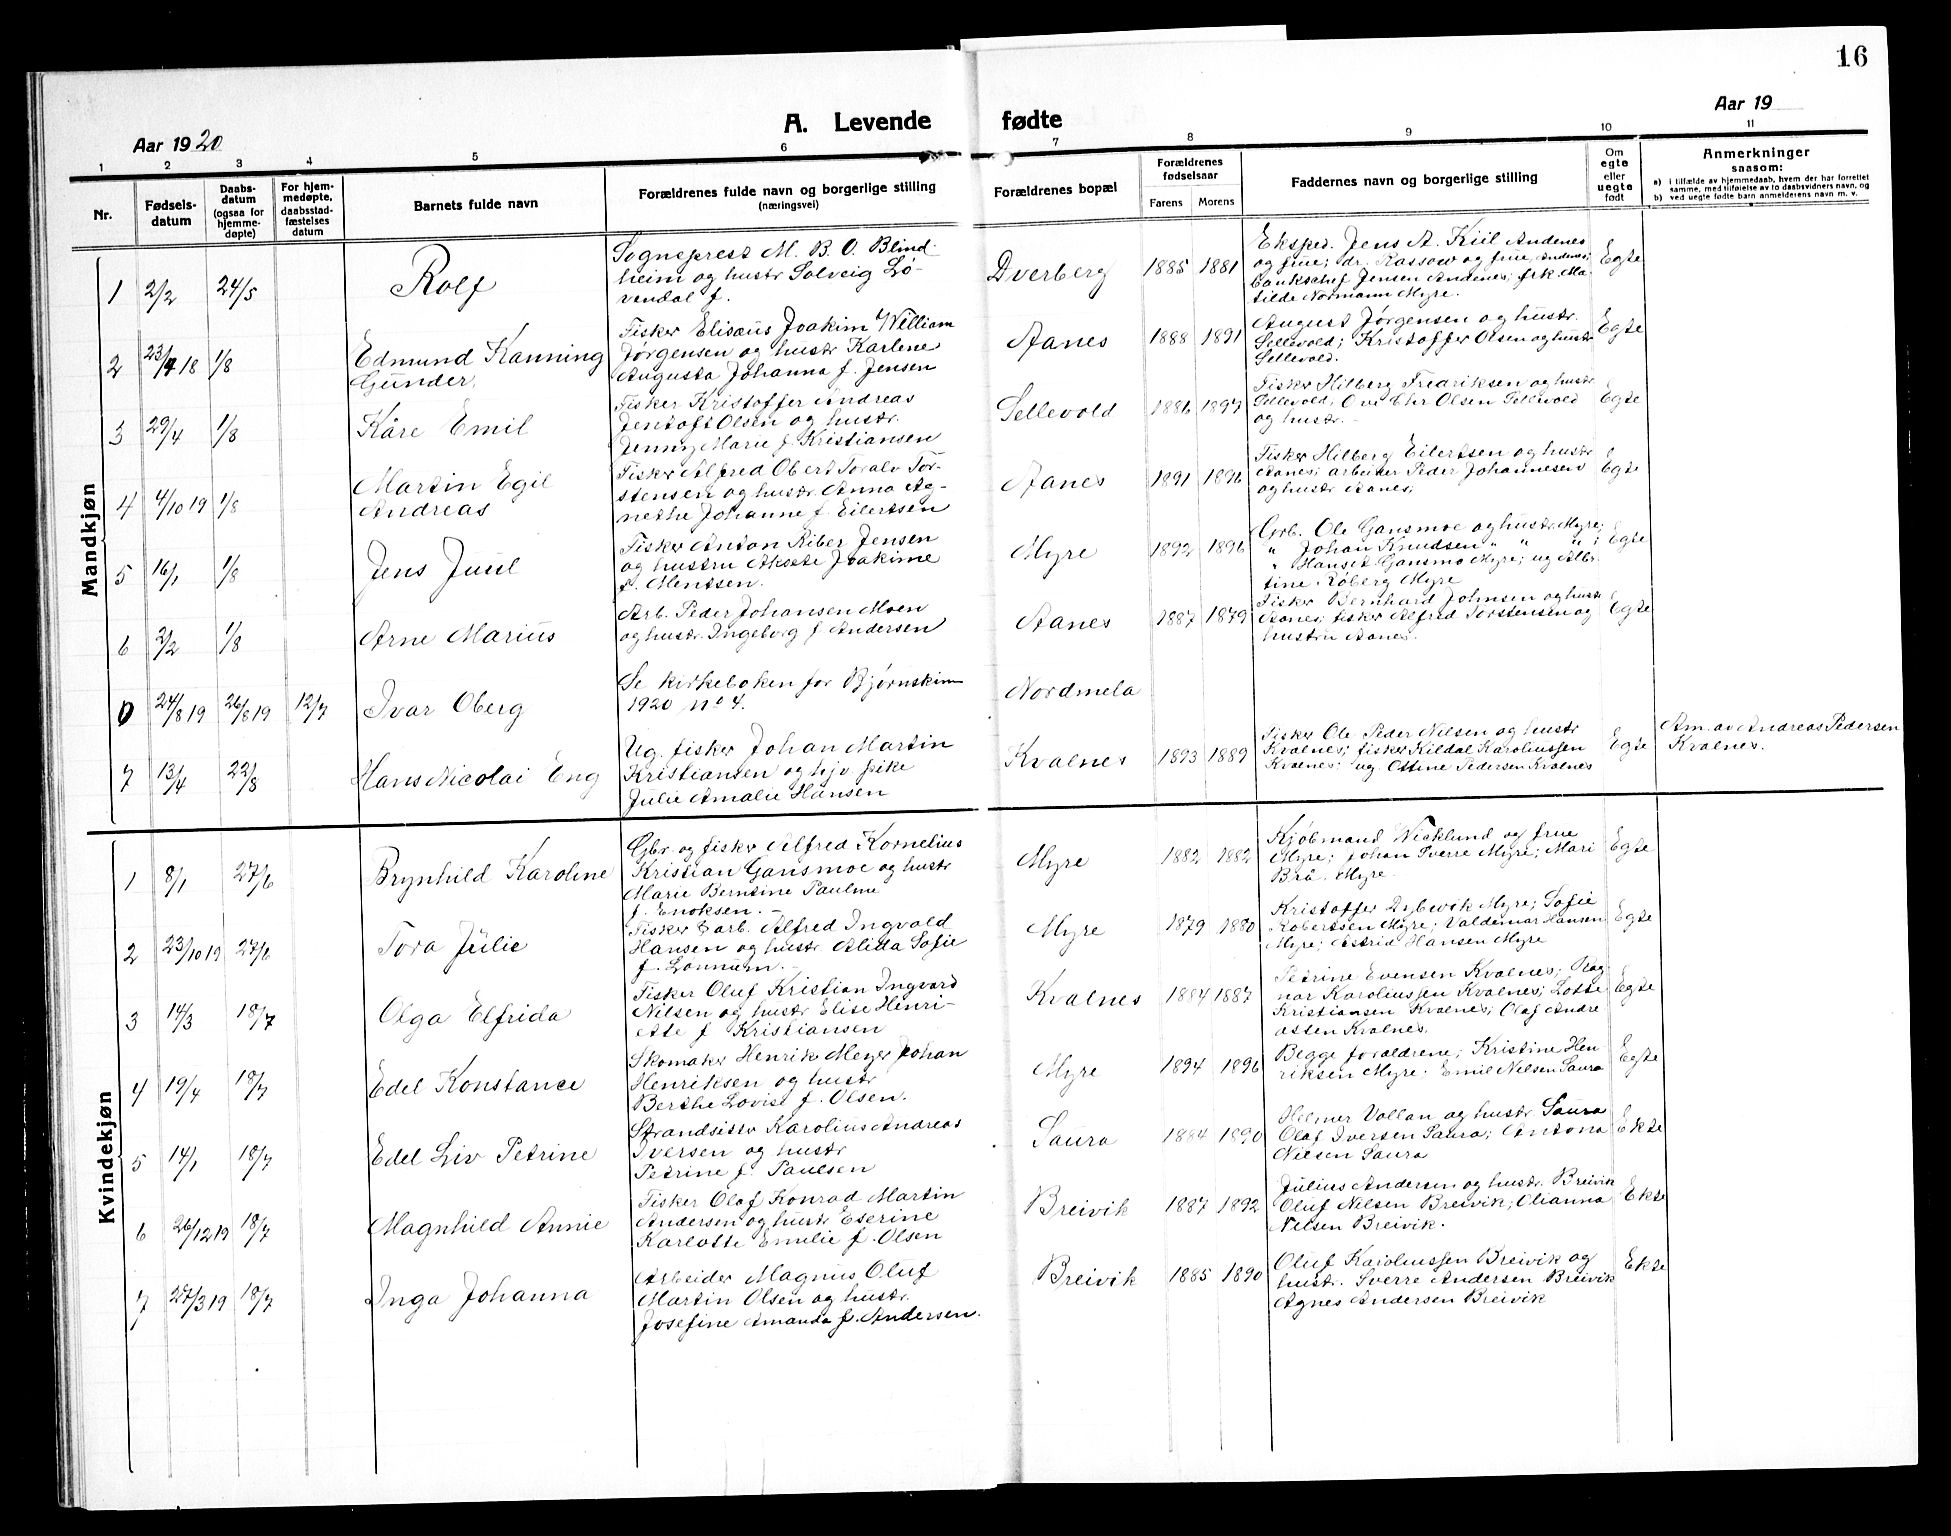 16
Aar 1920
A. Levende fødte
Aar 19
1 2 3 4 5 6 7 8 9 10 11
Nr.
Fødsels-
datum
Daabs-
datum
(ogsaa for
hjemme-
døpte)
For hjem-
medøpte,
daabsstad-
fæstelses
datum
Barnets fulde navn
Forældrenes fulde navn og borgerlige stilling
(næringsvei)
Forældrenes bopæl
Forældrenes
fødselsaar
Farens Morens
Faddernes navn og borgerlige stilling
Om
egte
eller
uegte
født
Anmerkninger
saasom:
a) i tilfælde av hjemmedaab, hvem der har forrettet
samme, med tilføielse av to daabsvidners navn, og
b) ved uegte fødte barn anmelderens navn m. v.
Mandkjøn
1 2/2 24/5 Rolf
Sogneprest M. B. O. Blind-
heim og hustr Solveig Lø-
vendal f.
Dverberg 1885 1881
Eksped. Jens A. Kiil Andenes
og frue; dr. Rassow og frue, Andenes;
bankschef Jensen Andenes; frk. Ma-
tilde Normann Myre.
Egte
2 23/4 18 1/8 Edmund Kanning
Gunder,
Fisker Elisæus Joakim William
Jørgensen og hustr Karlene
Augusta Johanna f. Jensen
Aanes 1888 1891
August Jørgensen og hustr.
Sellevold; Kristoffer Olsen og hustr
Sellevold.
Egte
3 29/4 1/8 Kåre Emil
Fisker Kristoffer Andreas
Jentoft Olsen og hustr.
Jenny Marie f. Kristiansen
Sellevold 1886 1897
Fisker Hilberg Fredriksen og hustr
Sellevold; Ove Chr Olsen Sellevold
og hustr.
Egte
4 4/10 19 1/8 Martin Egil
Andreas
Fisker Alfred Obert Toralv Tor-
stensen og hustr. Anna Ag-
nethe Johanne f. Eilertsen
Aanes 1891 1896
Fisker Hilberg Eilertsen og hustr
Aanes; arbeider Peder Johannesen
og hustr Aanes;
Egte
5 16/1 1/8 Jens Juul
Fisker Anton Riber Jensen
og hustru Aksete Joakime
f. Mentsen.
Myre 1892 1896
Grb. Ole Gansmoe og hustr. Myre;
" Johan Knudsen " " " ;
" Hans Gansmo Myre; ug Alber-
tine Roberg Myre
Egte
6 2/2 1/8 Arne Marius
Arb. Peder Johansen Moen
og hustr. Ingeborg f. Andersen
Aanes 1887 1879
Fisker Bernhard Johnsen og hustr
Aanes; fisker Alfred Torstensen og
hustru Aanes.
Egte
0 24/8 19 26/8 19 12/7 Ivar Oberg
Se kirkeboken for Bjørnskinn
1920 no 4.
Nordmela
7 13/4 22/8 Hans Nicolai Eng
Ug. fisker Johan Martin
Kristiansen og hjv pike
Julie Amalie Hansen
Kvalnes 1893 1889
Fisker Ole Peder Nilsen og hustr
Kvalnes; fisker Kildal Karoliussen
Kvalnes; ug. Ottine Pedersen Kvalnes
Egte
Am. av Andreas Pedersen
Kvalnes.
Kvindekjøn
1 8/1 27/6 Brynhild Karoline
Gbr. og fisker Alfred Kornelius
Kristian Gansmoe og hustr
Marie Berntine Pauline
f. Enoksen.
Myre 1882 1882
Kjøbmand Wicklund og frue
Myre; Johan Sverre Myre; Mari
Brå. Myre.
Egte
2 23/10 19 27/6 Tora Julie
Fisker & arb. Alfred Ingvald
Hansen og hustr Alida Sofie
f. Lonnum.
Myre 1879 1880
Kristoffer Dybevik Myre; Sofie
Robertsen Myre; Valdemar Hansen
Myre; Astrid Hansen Myre
Egte
3 14/3 18/7 Olga Elfrida
Fisker Oluf Kristian Ingvard
Nilsen og hustr Elise Henri-
ette f Kristiansen
Kvalnes 1884 1887
Petrine Evensen Kvalnes; Rag
nar Karoliussen Kvalnes; Lotte
Kristiansen Kvalnes; Olaf Andre
assen Kvalnes.
Egte
4 19/4 18/7 Edel Konstance
Skomaker Henrik Meyer Johan
Henriksen og hustr
Berthe Lovise f. Olsen.
Myre 1894 1896
Begge forældrene; Kristine Hen
riksen Myre. Emil Nilsen Saura
Egte
5 14/1 18/7 Edel Liv Petrine
Strandsitter Karolius Andreas
Iversen og hustr
Petrine f. Paulsen
Saura 1884 1890
Helmer Vollan og hustr Saura
Olaf Iversen Saura; Antona
Nilsen Saura
Ekte
6 26/12 19 18/7 Magnhild Annie
Fisker Olaf Konrad Martin
Andersen og hustr Eserine
Karlotte Emilie f. Olsen
Breivik 1887 1892
Julius Andersen og hustr. Breivik
Oluf Nilsen Breivik; Olianna
Nilsen Breivik.
Ekte
7 27/3 19 18/7 Inga Johanna
Arbeider Magnus Oluf
Martin Olsen og hustr.
Josefine Amanda f. Andersen.
Breivik 1885 1890
Oluf Karoliussen Breivik og
hustr. Sverre Andersen Breivik
Agnes Andersen Breivik
Ekte